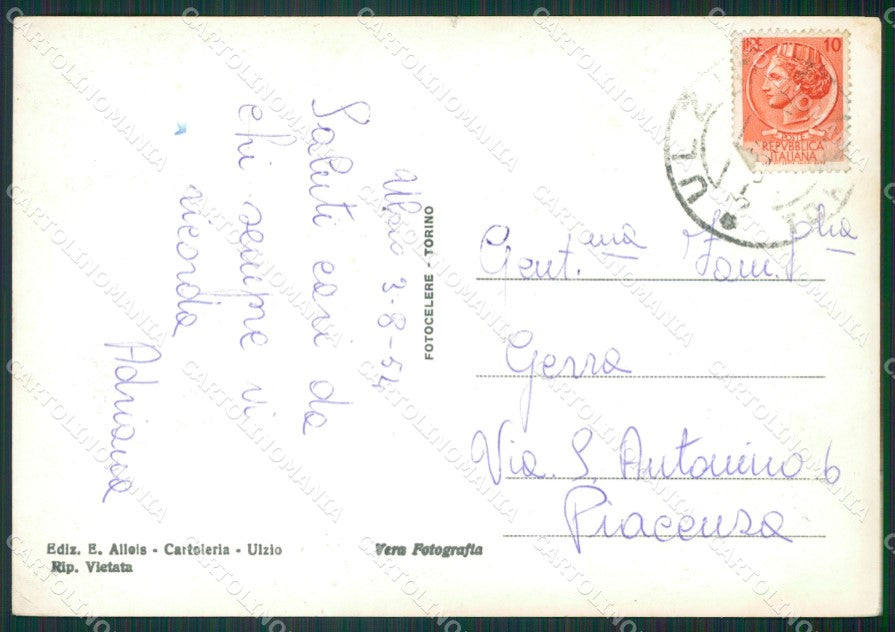 Ulzio 3-8-54
Saluti cari da
chi sempre vi
ricorda
Adriana
FOTOCELERE - TORINO
LIRE 10
POSTE
REPVBBLICA
ITALIANA
ULZIO
Gent.ma Fam.glia
Gerra
Via S. Antonino 6
Piacenza
Ediz. E. Allois - Cartoleria - Ulzio
Rip. Vietata
Vera Fotografia
CARTOLINOMANIA